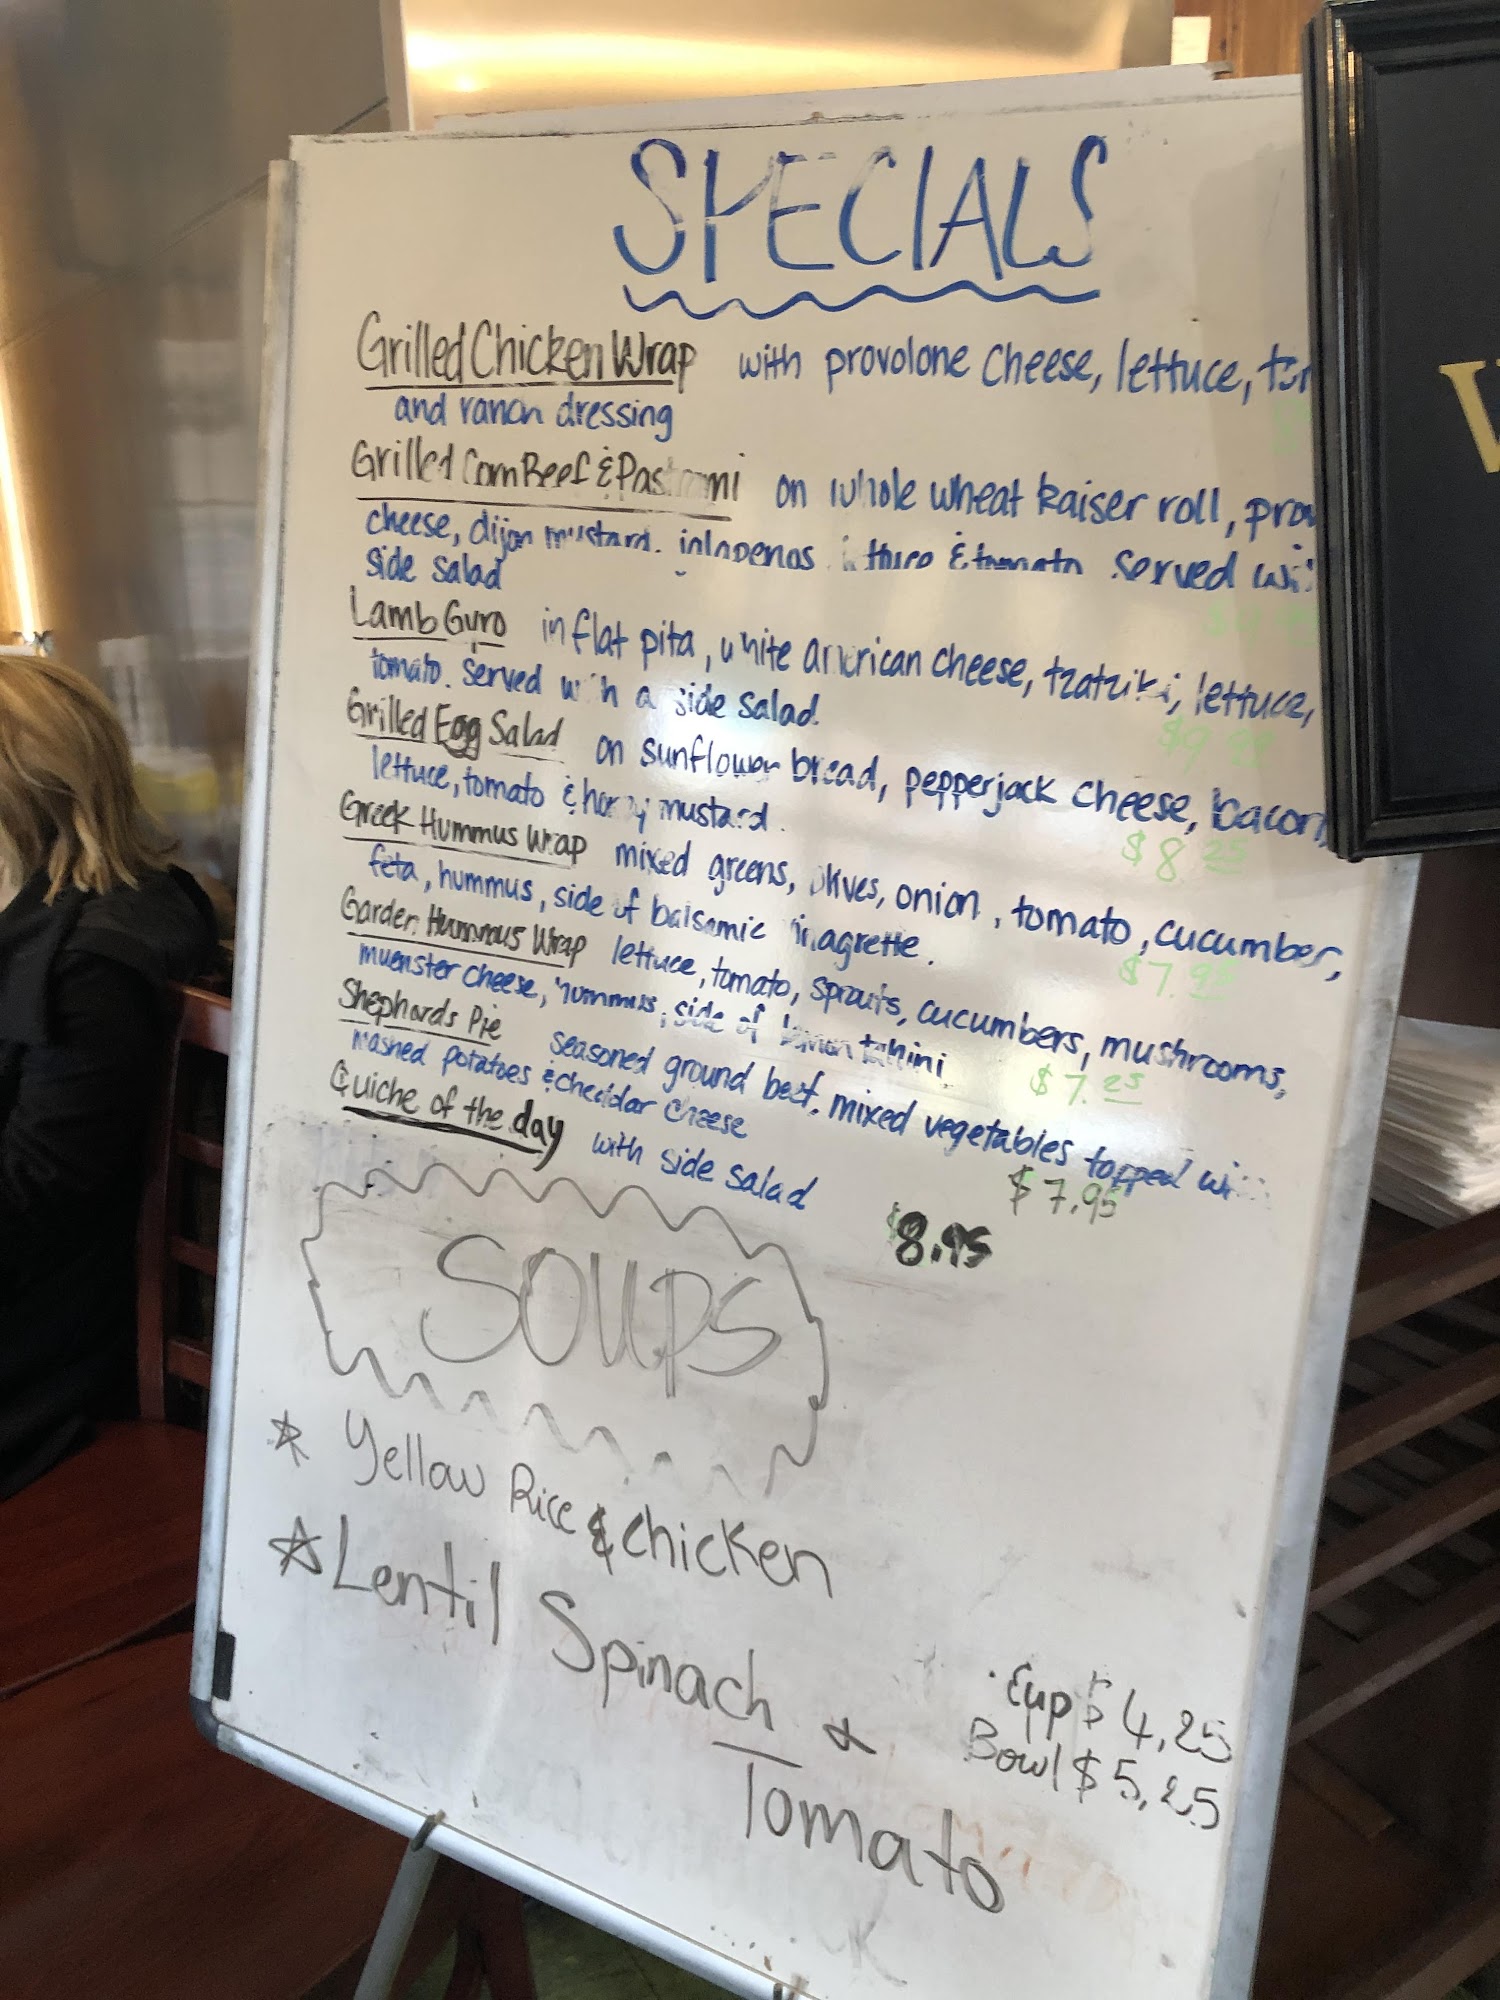 SPECIALS
Grilled Chicken Wrap with provolone cheese, lettuce,
and ranch dressing
Grilled Corn Beef & Pastrami on whole wheat kaiser roll,
cheese, dijon mustard, jalapenos lettuce & tomato served
side salad
Lamb Gyro in flat pita, white american cheese, tzatziki, lettuce,
tomato. served with a side salad
$9
Grilled Egg Salad on sunflower bread, pepperjack cheese, bacon,
lettuce, tomato & honey mustard.
$8.25
Greek Hummus Wrap mixed greens, olives, onion, tomato, cucumber,
feta, hummus, side of balsamic vinagrette.
$7.95
Garden Hummus Wrap lettuce, tomato, sprouts, cucumbers, mushrooms,
muenster cheese, hummus, side of lemon tahini.
$7.25
Shephards Pie seasoned ground beef, mixed vegetables topped
mashed potatoes & cheddar cheese
$7.95
Quiche of the day with side salad
$8.95
SOUPS
Yellow Rice & chicken
Lentil Spinach &
Tomato
Cup $4.25
Bowl $5.25